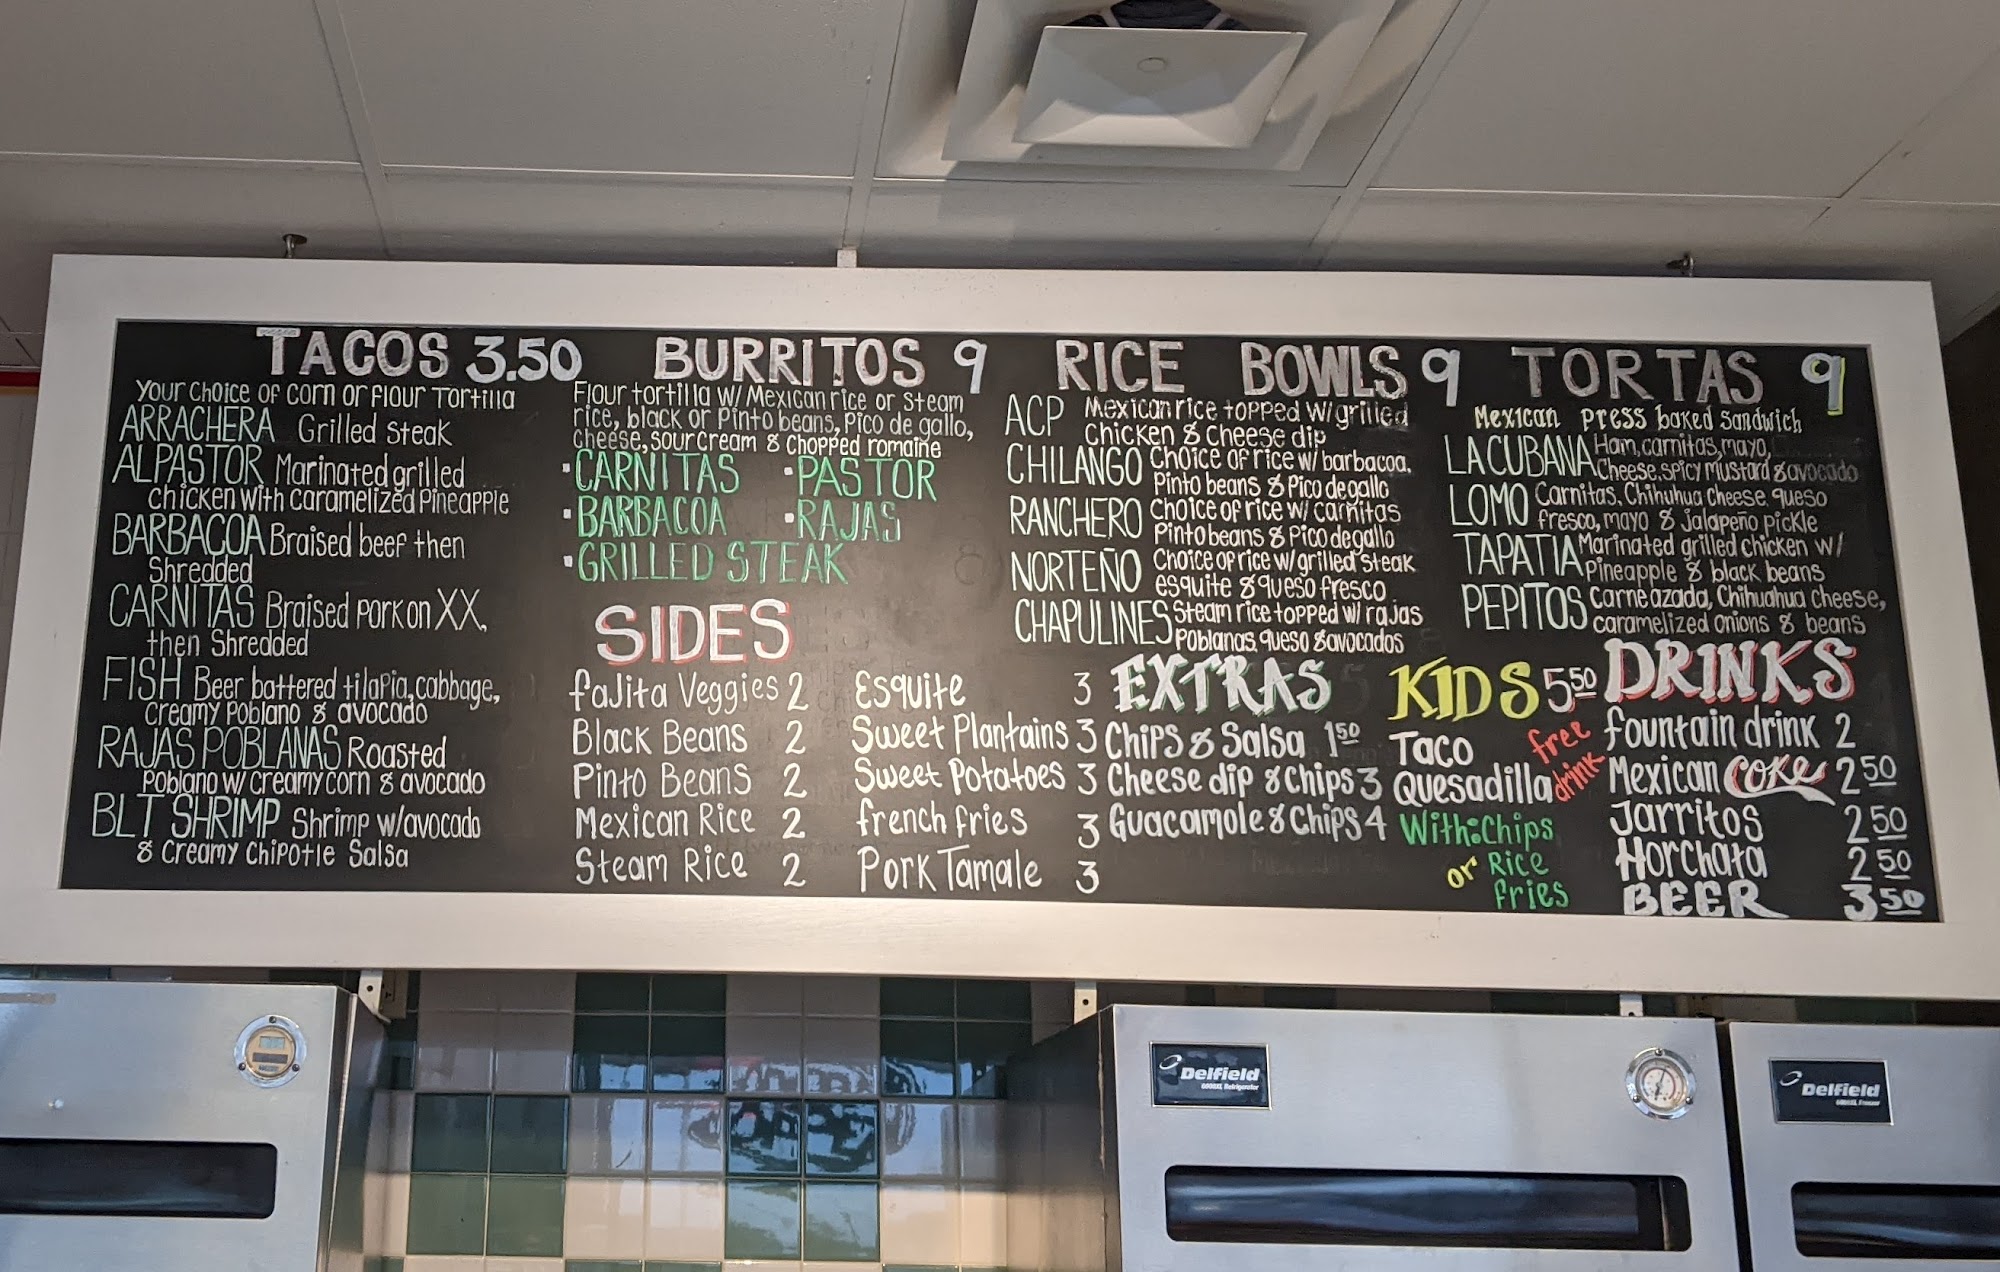 TACOS 3.50
Your choice of corn or flour Tortilla
ARRACHERA Grilled steak
AL PASTOR Marinated grilled
chicken with caramelized Pineapple
BARBACOA Braised beef then
Shredded
CARNITAS Braised pork on XX,
then Shredded
FISH Beer battered tilapia, cabbage,
Creamy Poblano & avocado
RAJAS POBLANAS Roasted
Poblano w/ creamy corn & avocado
BLT SHRIMP Shrimp w/avocado
& Creamy Chipotle Salsa
BURRITOS 9
Flour tortilla w/ Mexican rice or steam
rice, black or Pinto beans, Pico de gallo,
cheese, sour cream & chopped romaine
·CARNITAS ·PASTOR
·BARBACOA ·RAJAS
·GRILLED STEAK
SIDES
fajita Veggies 2
Black Beans 2
Pinto Beans 2
Mexican Rice 2
Steam Rice 2
Esquite 3
Sweet Plantains 3
Sweet Potatoes 3
french fries 3
Pork Tamale 3
RICE BOWLS 9
ACP Mexican rice topped w/ grilled
Chicken & Cheese dip
CHILANGO Choice of rice w/ barbacoa,
Pinto beans & Pico de gallo
RANCHERO Choice of rice w/ carnitas
Pinto beans & Pico de gallo
NORTEÑO Choice of rice w/ grilled steak
esquite & queso fresco
CHAPULINES Steam rice topped w/ rajas
Poblanas, queso & avocados
EXTRAS
Chips & Salsa 1.50
Cheese dip & Chips 3
Guacamole & Chips 4
TORTAS 9
Mexican press baked sandwich
LA CUBANA Ham, carnitas, mayo,
Cheese, spicy mustard & avocado
LOMO Carnitas, Chihuhua cheese, queso
fresco, mayo & jalapeño pickle
TAPATIA Marinated grilled chicken w/
Pineapple & black beans
PEPITOS Carne azada, Chihuahua cheese,
caramelized onions & beans
KIDS 5.50
Taco
Quesadilla
free
drink
With: Chips
or Rice
fries
DRINKS
fountain drink 2
Mexican Coke 2.50
Jarritos 2.50
Horchata 2.50
BEER 3.50
Delfield
6000XL Refrigerator
Delfield